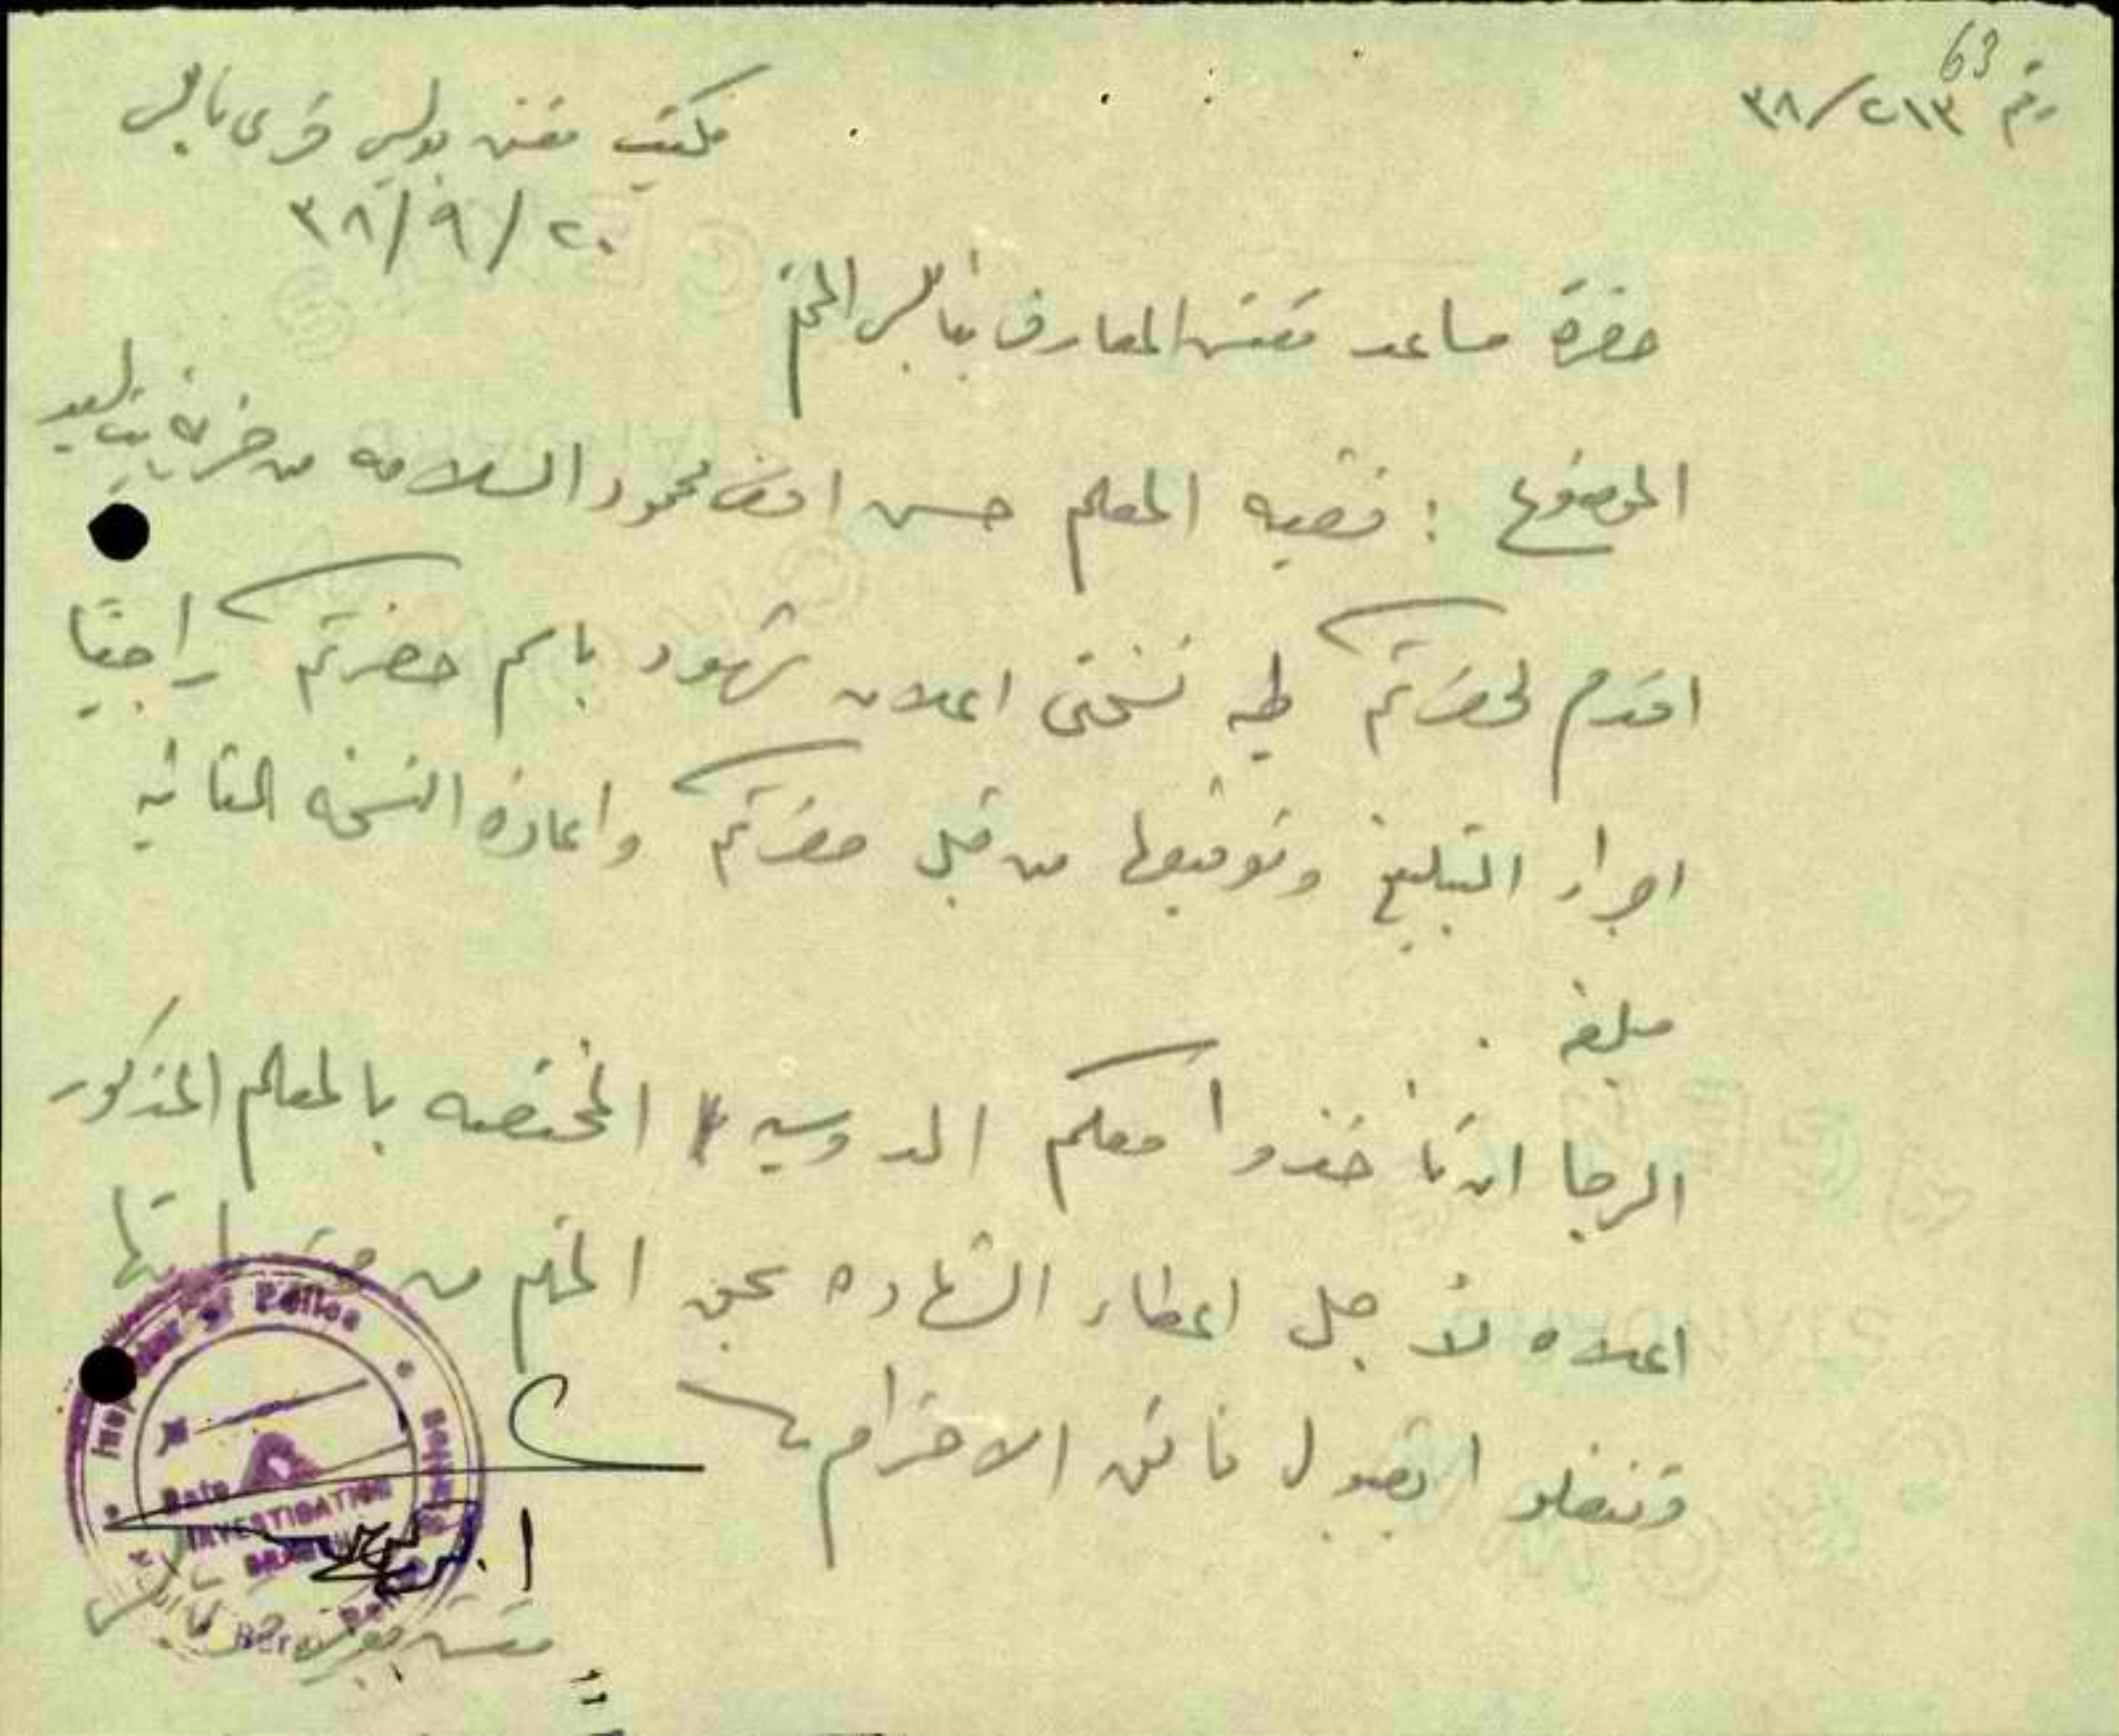 63
رقم ٢١٣/٣٨
مكتب مفتش بوليس قرى نابلس
٢٠/٩/٣٨
حضرة مساعد مفتش المعارف بنابلس المحترم
الموضوع : قضيه المعلم حسن افندي محمود السلامه من خربة بيت ليد
اقدم لحضرتكم طيه نسختى اعلان شهود باسم حضرتكم راجيًا
اجراء التبليغ وتوقيعها من قبل حضرتكم واعادة النسخه الثانيه
مبلغه .
الرجا ان تأخذوا معكم الدوسيه المختصه بالمعلم المذكور
اعلاه لأجل اعطاء الشهاده بحق المعلم من
وتفضلوا بقبول فائق الاحترام
Inspector of Police
Date
INVESTIGATION
مفتش بوليس قرى نابلس